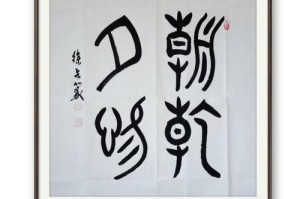 朝乾
夕惕